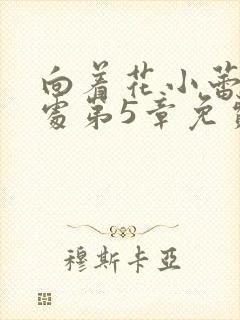 向着花小蕾
处第5章免费
穆斯卡亞